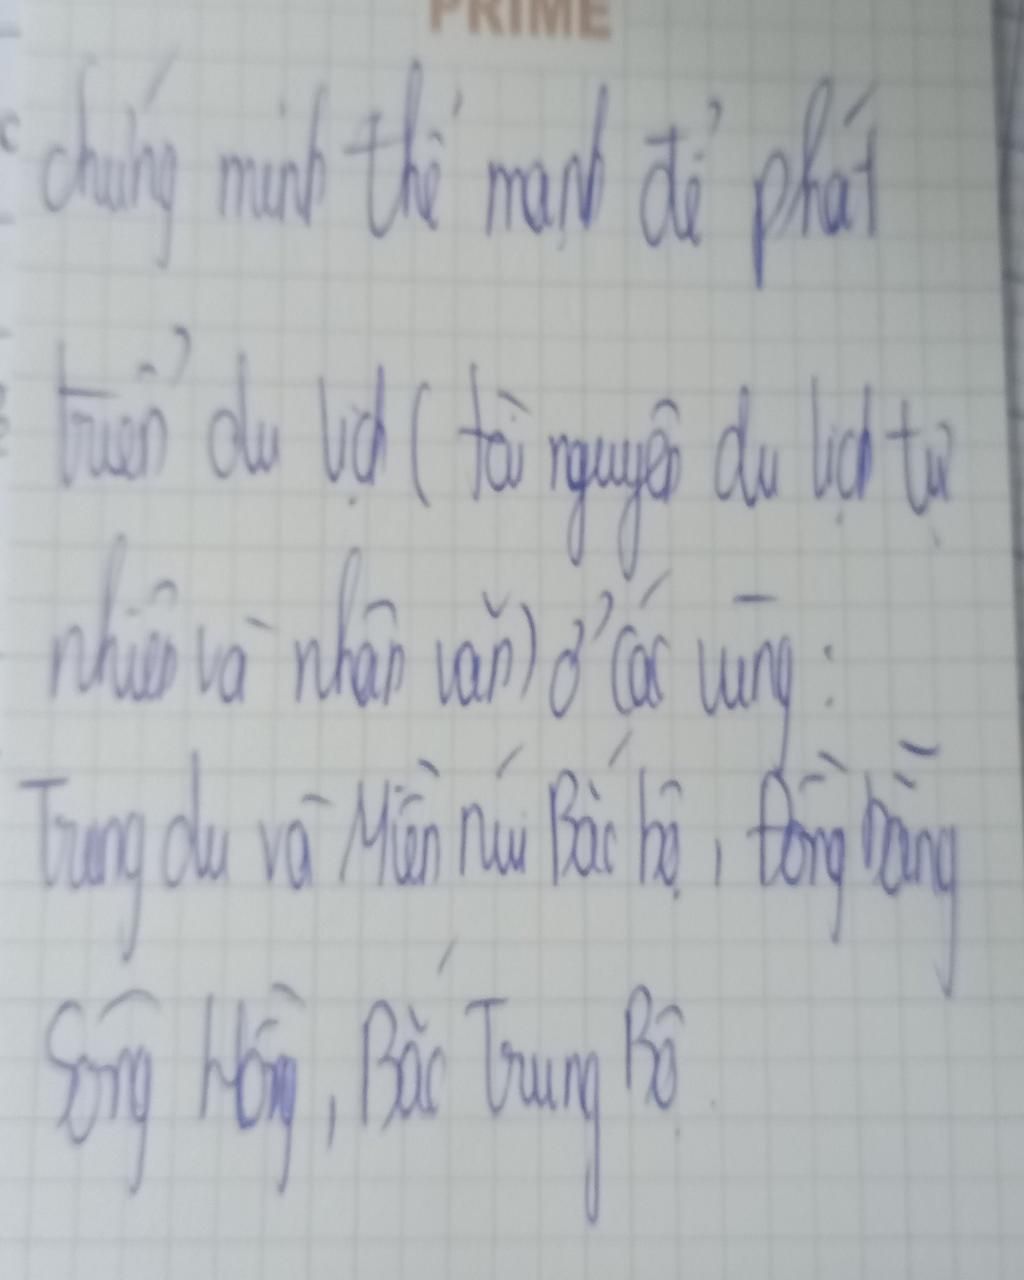 PRIME
chứng minh thế mạnh để phát
triển du lịch ( tài nguyên du lịch tự
nhiên và nhân văn) ở các vùng :
Trung du và Miền núi Bắc bộ, Đồng bằng
Sông Hồng, Bắc Trung Bộ.